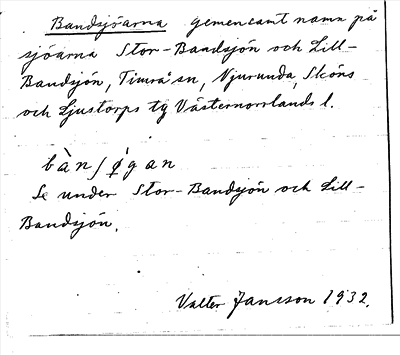 Bandsjöarna gemensamt namn på
sjöarna Stor-Bandsjön och Lill-
Bandsjön, Timrå sn, Njurunda, Sköns
och Ljustorps tg Västernorrlands l.
bànʃø̀gan
Se under Stor-Bandsjön och Lill-
Bandsjön.
Valter Jansson 1932.